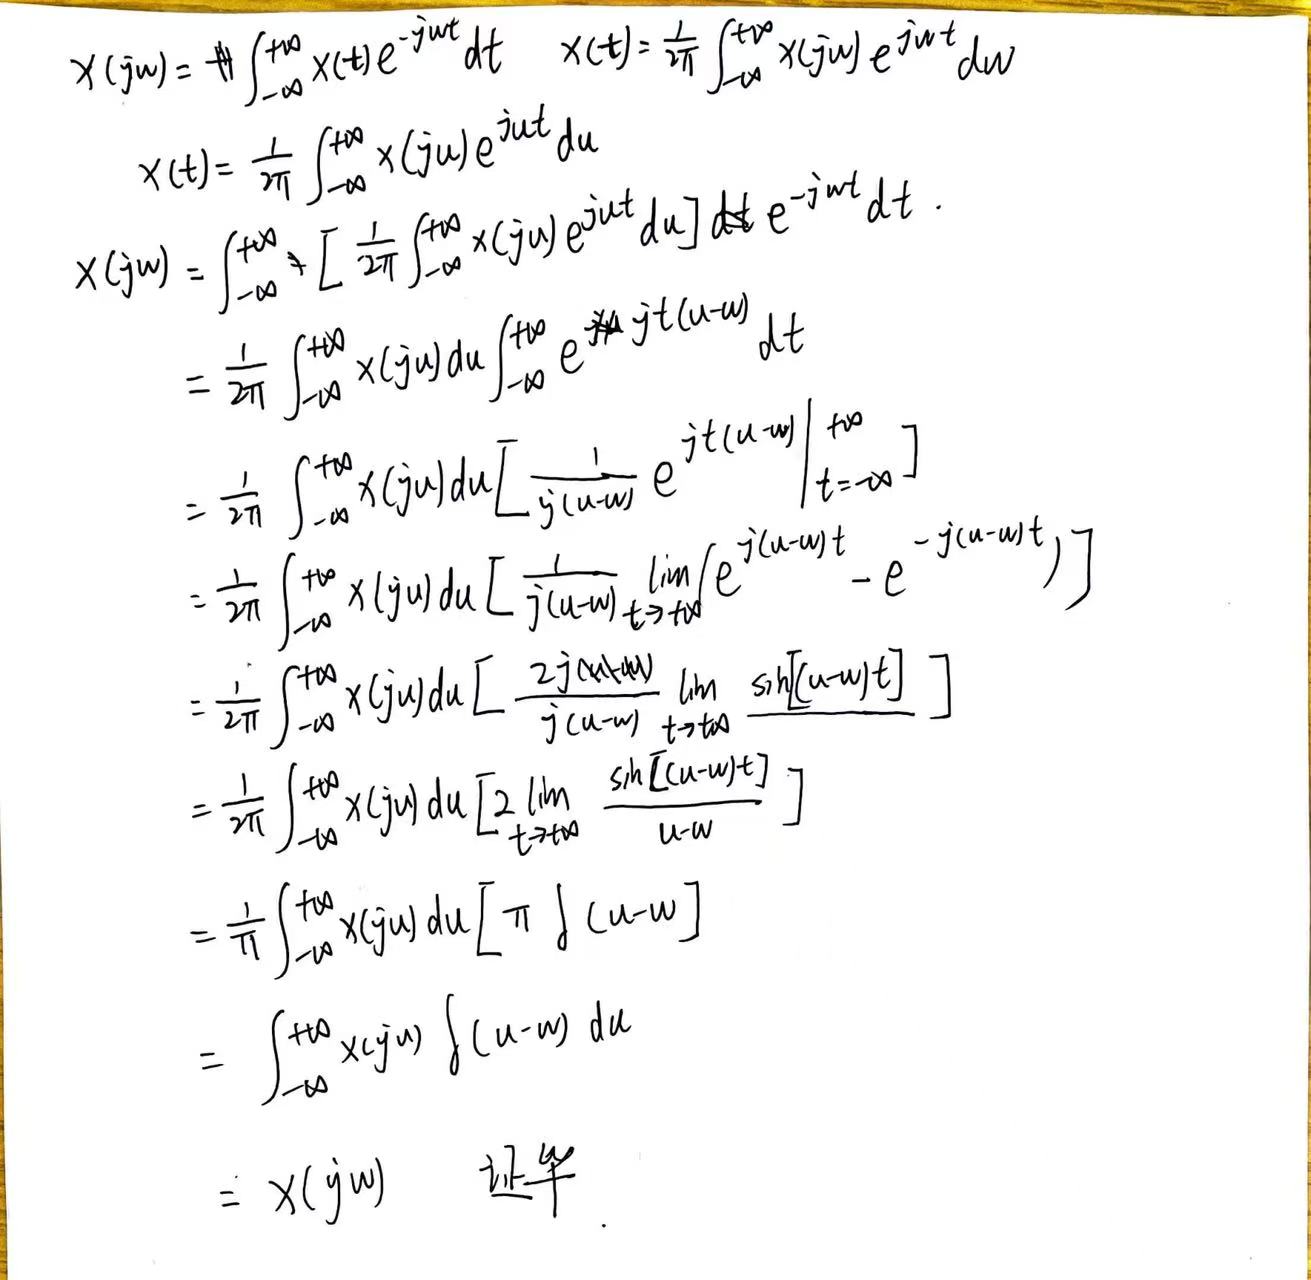 X(jw) = ∫_{-∞}^{+∞} x(t) e^{-jwt} dt   x(t) = \frac{1}{2π} ∫_{-∞}^{+∞} X(jw) e^{jwt} dw
x(t) = \frac{1}{2π} ∫_{-∞}^{+∞} X(ju) e^{jut} du
X(jw) = ∫_{-∞}^{+∞} [ \frac{1}{2π} ∫_{-∞}^{+∞} X(ju) e^{jut} du ] e^{-jwt} dt .
= \frac{1}{2π} ∫_{-∞}^{+∞} X(ju) du ∫_{-∞}^{+∞} e^{jt(u-w)} dt
= \frac{1}{2π} ∫_{-∞}^{+∞} X(ju) du [ \frac{1}{j(u-w)} e^{jt(u-w)} |_{t=-∞}^{+∞} ]
= \frac{1}{2π} ∫_{-∞}^{+∞} X(ju) du [ \frac{1}{j(u-w)} lim_{t→+∞} ( e^{j(u-w)t} - e^{-j(u-w)t} ) ]
= \frac{1}{2π} ∫_{-∞}^{+∞} X(ju) du [ \frac{2j}{j(u-w)} lim_{t→+∞} sin[(u-w)t] ]
= \frac{1}{2π} ∫_{-∞}^{+∞} X(ju) du [ 2 lim_{t→+∞} \frac{sin[(u-w)t]}{u-w} ]
= \frac{1}{π} ∫_{-∞}^{+∞} X(ju) du [ π δ(u-w) ]
= ∫_{-∞}^{+∞} X(ju) δ(u-w) du
= X(jw)   证毕 .